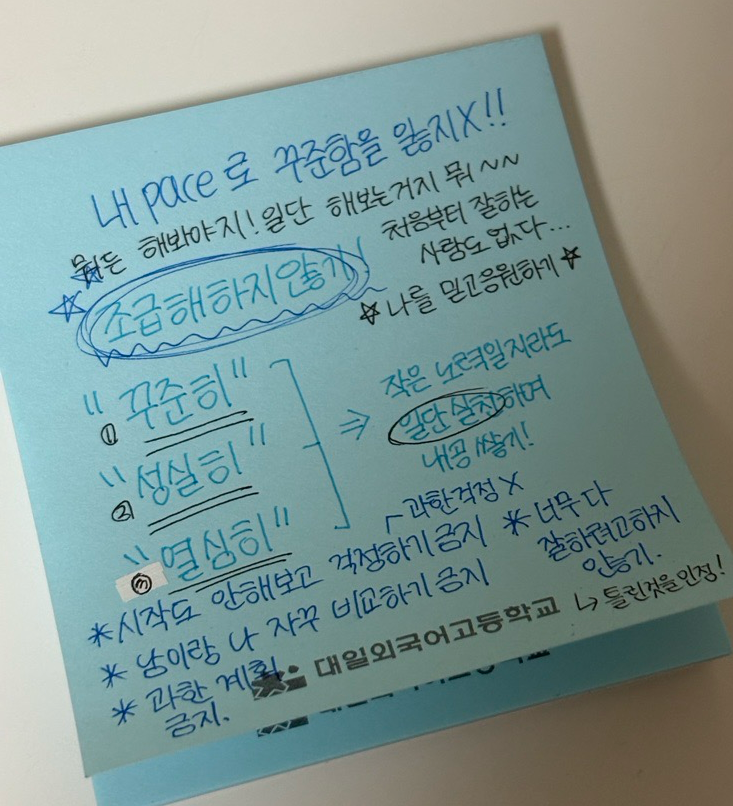 내 pace로 꾸준함을 잃지X!!
뭐든 해봐야지! 일단 해보는거지 뭐~~
처음부터 잘하는
사람도 없다...
☆ 조급해하지않기!
☆나를 믿고응원하기☆
① "꾸준히"
② "성실히"
③ "열심히"
⇒ 작은 노력일지라도
일단실천하며
내공쌓기!
* 시작도 안해보고 걱정하기금지
과한걱정X
* 남이랑 나 자꾸 비교하기 금지
* 과한 계획
금지.
* 너무 다
잘하려고하지
않기.
↳ 틀린것을인정!
대일외국어고등학교